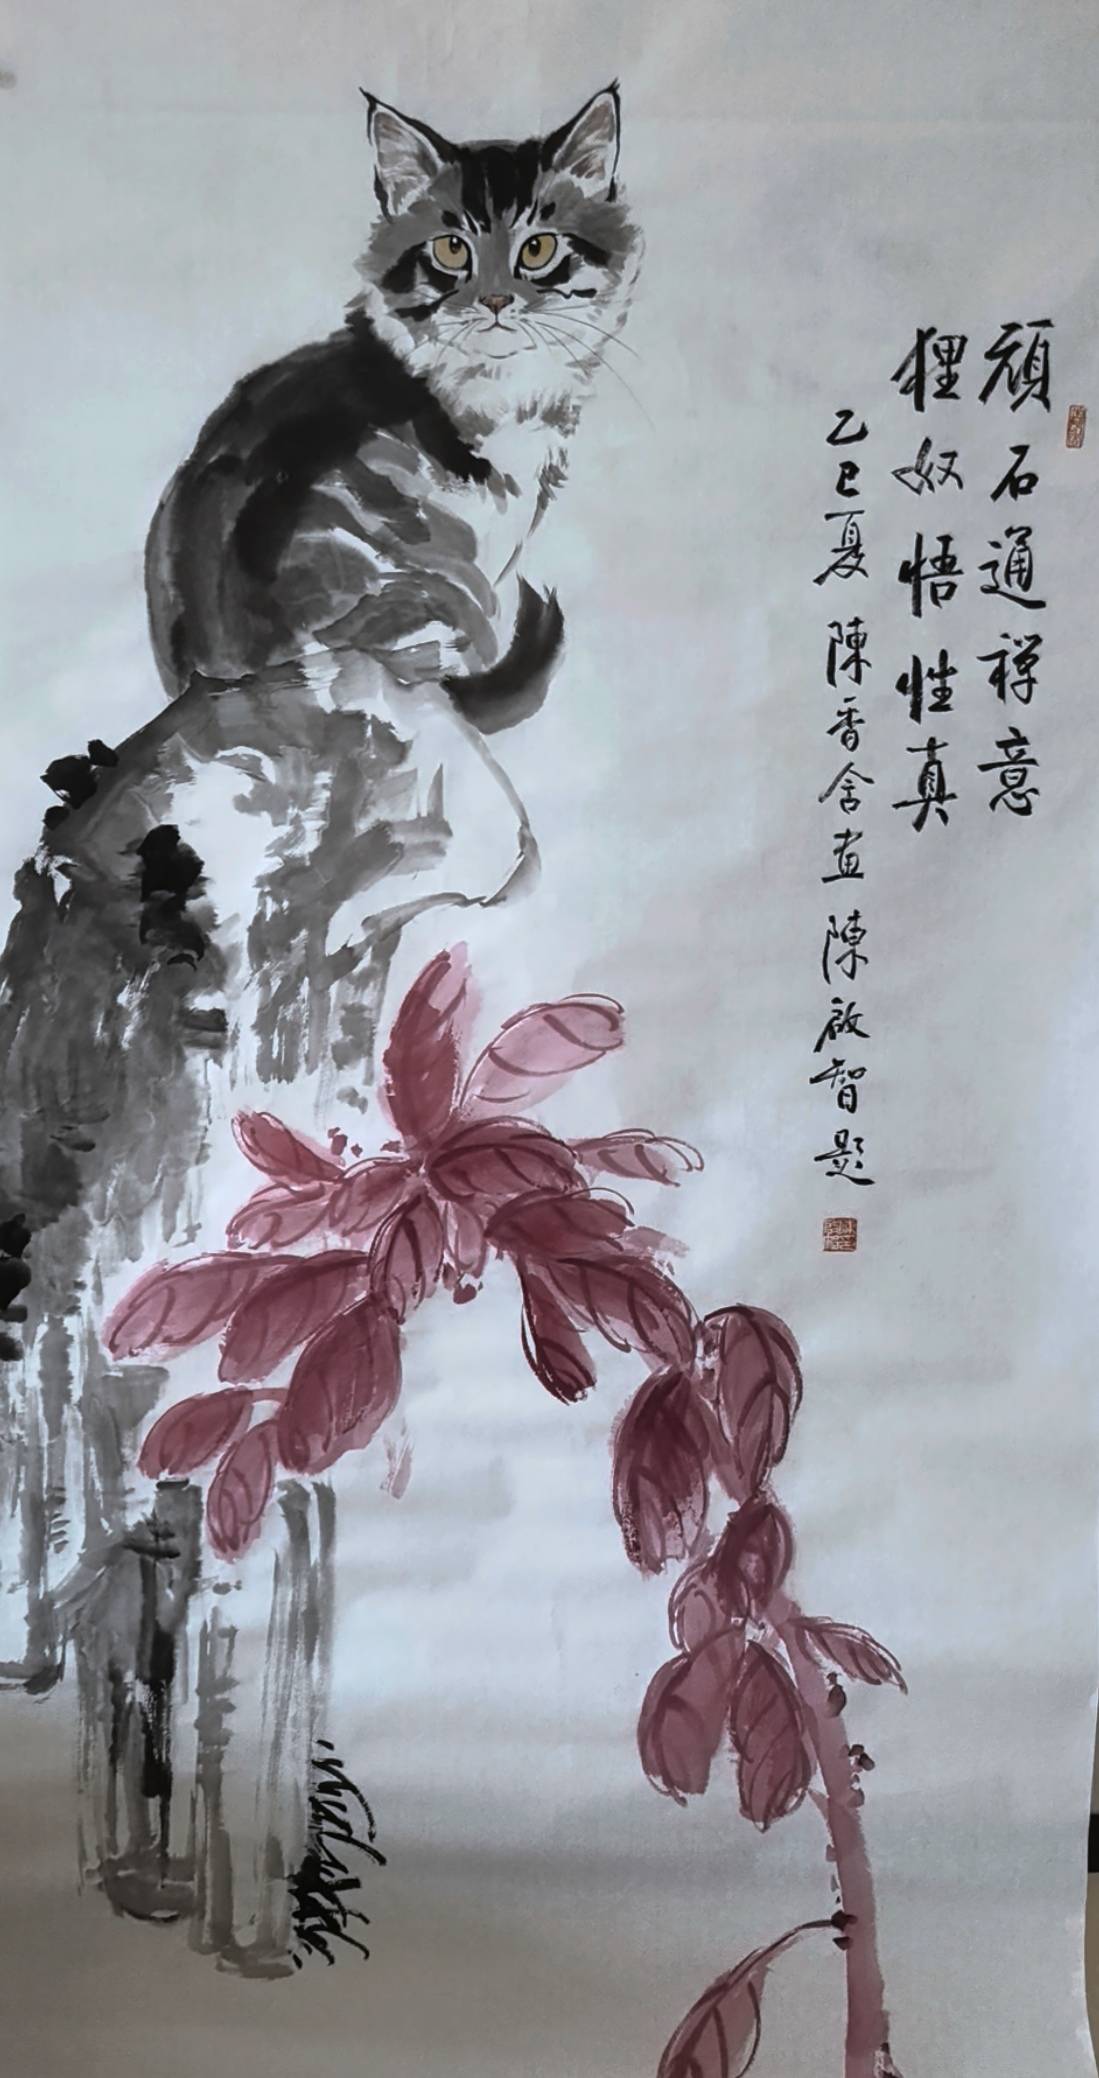 頑石通禅意
狸奴悟性真
乙巳夏 陳香含畫 陳啟智題